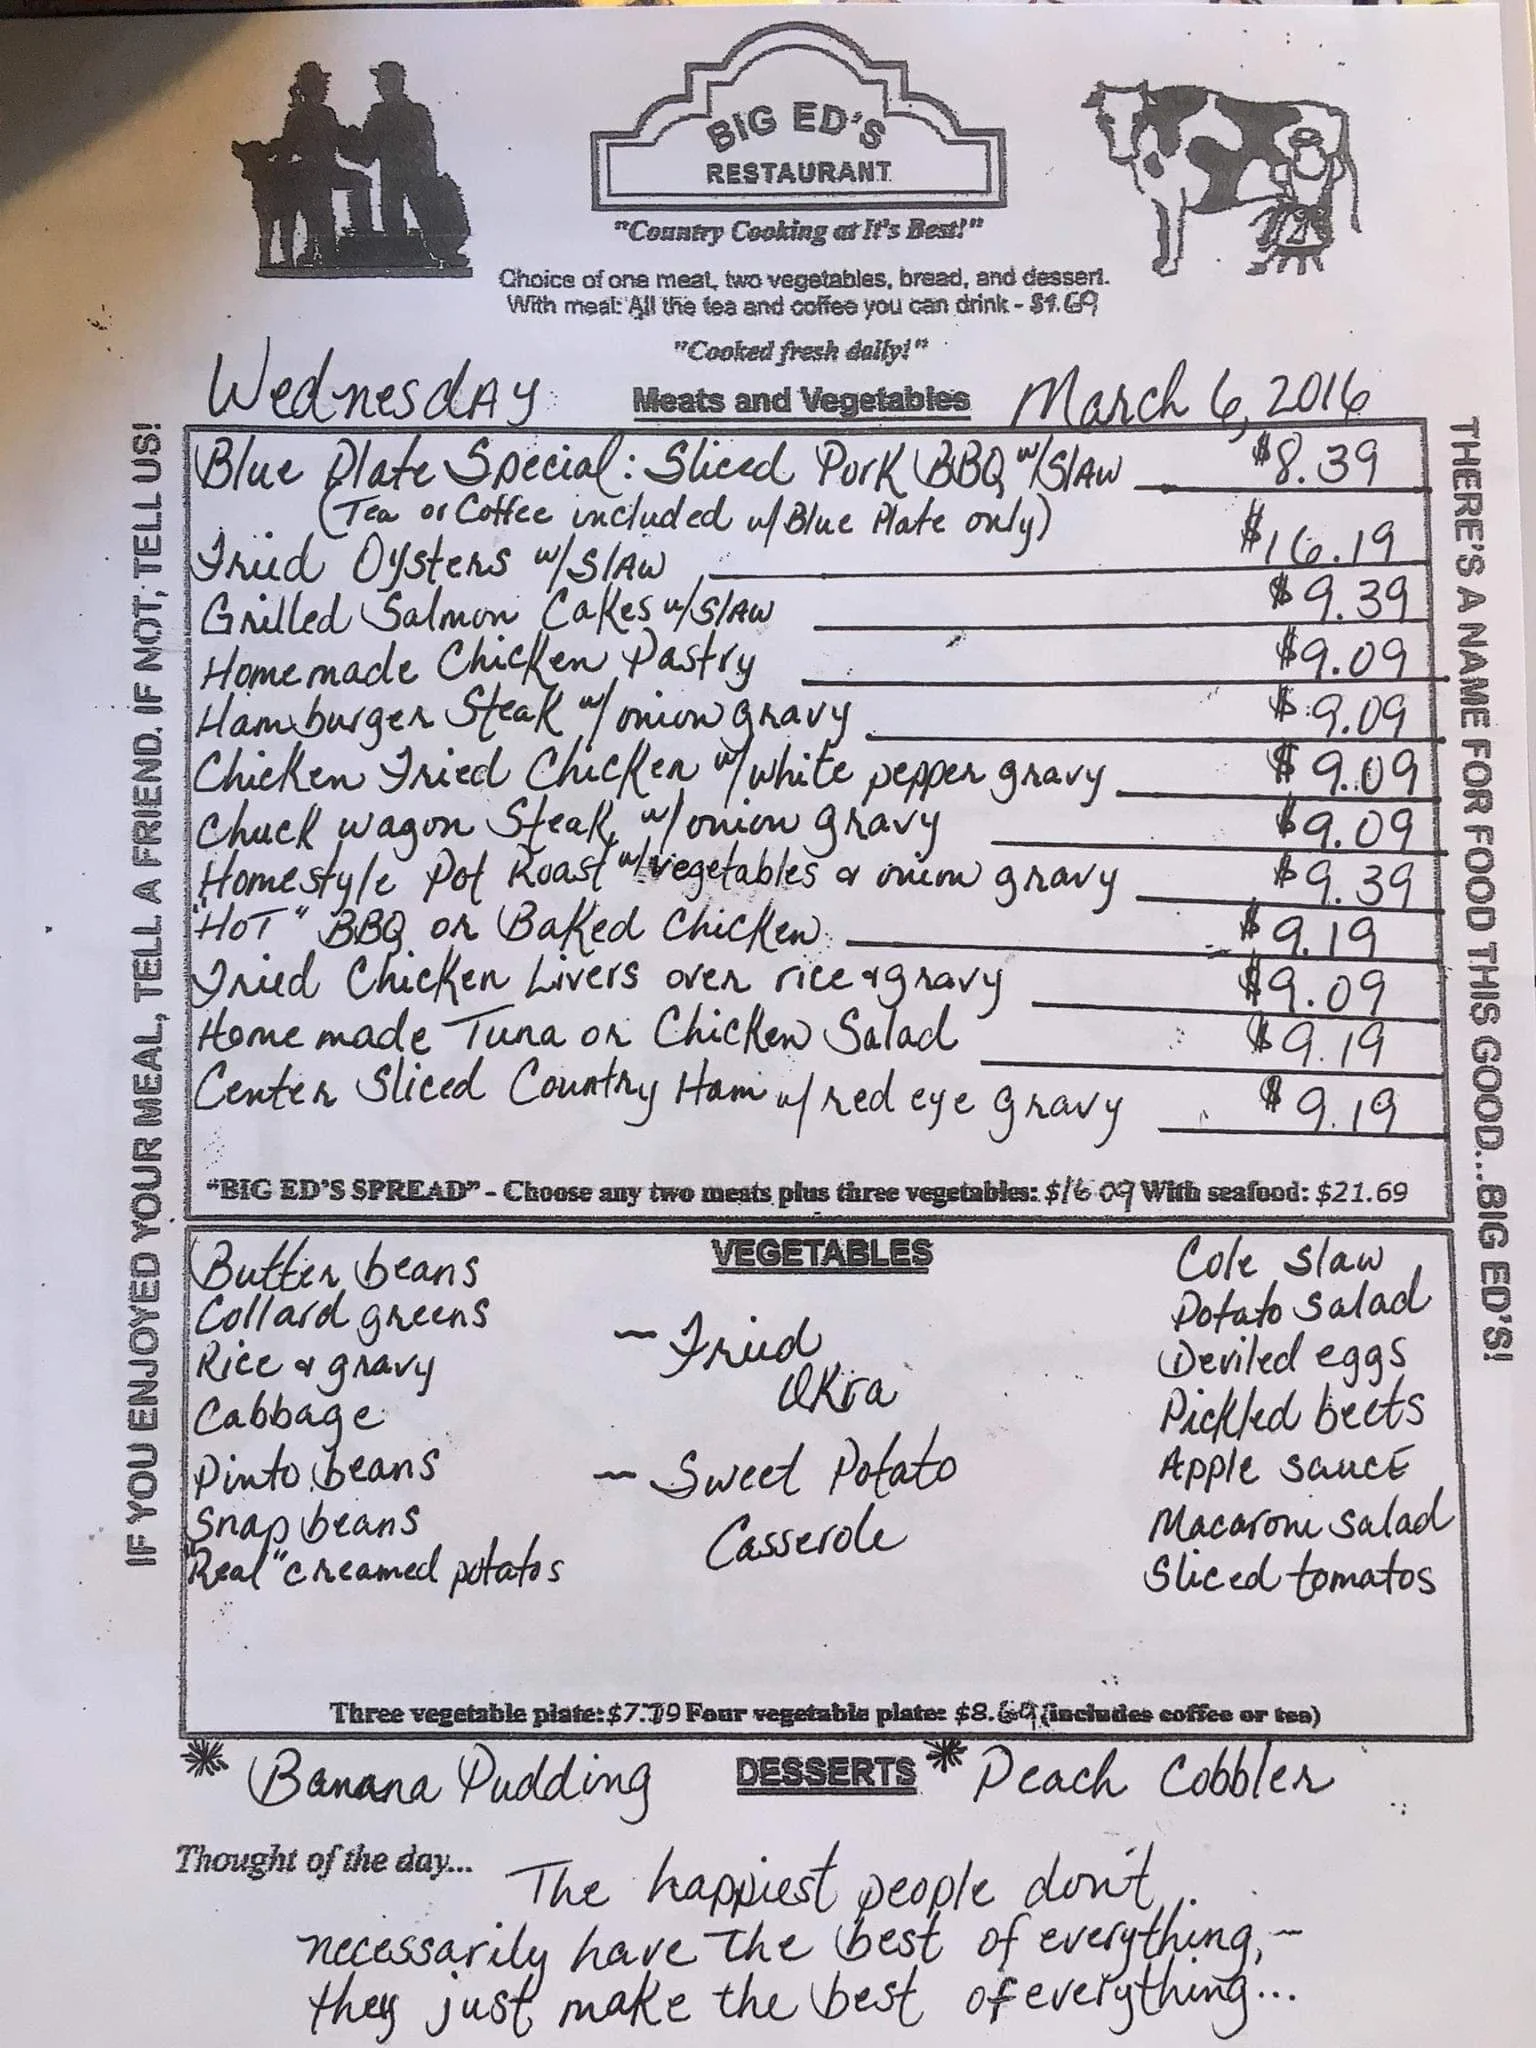 BIG ED'S
RESTAURANT
"Country Cooking at It's Best!"
Choice of one meat, two vegetables, bread, and dessert.
With meal: All the tea and coffee you can drink - $1.69
"Cooked fresh daily!"
Wednesday Meats and Vegetables March 6, 2016
IF YOU ENJOYED YOUR MEAL, TELL A FRIEND. IF NOT, TELL US!
Blue Plate Special: Sliced Pork BBQ w/Slaw $8.39
(Tea or Coffee included w/ Blue Plate only)
Fried Oysters w/Slaw $16.19
Grilled Salmon Cakes w/Slaw $9.39
Homemade Chicken Pastry $9.09
Hamburger Steak w/ onion gravy $9.09
Chicken Fried Chicken w/ white pepper gravy $9.09
Chuck wagon Steak w/ onion gravy $9.09
Homestyle Pot Roast w/ vegetables & onion gravy $9.39
"HOT" BBQ or Baked Chicken $9.19
Fried Chicken Livers over rice & gravy $9.09
Homemade Tuna or Chicken Salad $9.19
Center Sliced Country Ham w/ red eye gravy $9.19
"BIG ED'S SPREAD" - Choose any two meats plus three vegetables: $16.09 With seafood: $21.69
THERE'S A NAME FOR FOOD THIS GOOD...BIG ED'S!
VEGETABLES
Butter beans
Collard greens
Rice & gravy
Cabbage
Pinto beans
Snap beans
"Real" creamed potatos
- Fried
Okra
- Sweet Potato
Casserole
Cole slaw
Potato salad
Deviled eggs
Pickled beets
Apple sauce
Macaroni salad
Sliced tomatos
Three vegetable plate: $7.79 Four vegetable plate: $8.69 (includes coffee or tea)
* Banana Pudding DESSERTS * Peach Cobbler
Thought of the day... The happiest people don't
necessarily have the best of everything, -
they just make the best of everything...